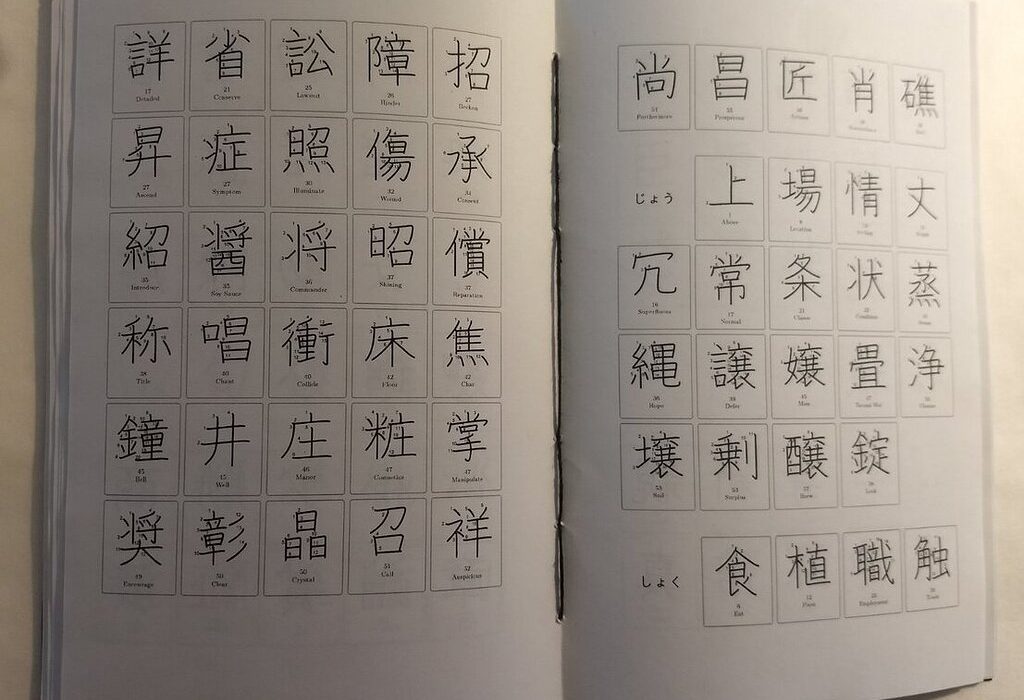 詳 省 訟 障 招
17 21 25 26 27
Detailed Conserve Lawsuit Hinder Beckon
昇 症 照 傷 承
27 27 30 32 34
Ascend Symptom Illuminate Wound Consent
紹 醤 将 昭 償
35 35 36 37 37
Introduce Soy Sauce Commander Shining Reparation
称 唱 衝 床 焦
38 40 40 42 42
Title Chant Collide Floor Char
鐘 井 庄 粧 掌
45 15 46 47 47
Bell Well Manor Cosmetics Manipulate
奨 彰 晶 召 祥
49 50 50 51 52
Encourage Clear Crystal Call Auspicious
尚 昌 匠 肖 礁
54 55
Furthermore Prosperous Artisan
じょう 上 場 情 丈
Above Location
冗 常 条 状 蒸
16 17 21
Superfluous Normal Clause Condition Steam
縄 譲 嬢 畳 浄
36 38 45 47
Rope Defer Miss Tatami Mat Cleanse
壌 剰 醸 錠
53 53 57
Soil Surplus Brew Lock
しょく 食 植 職 触
6 12
Eat Plant Employment Touch